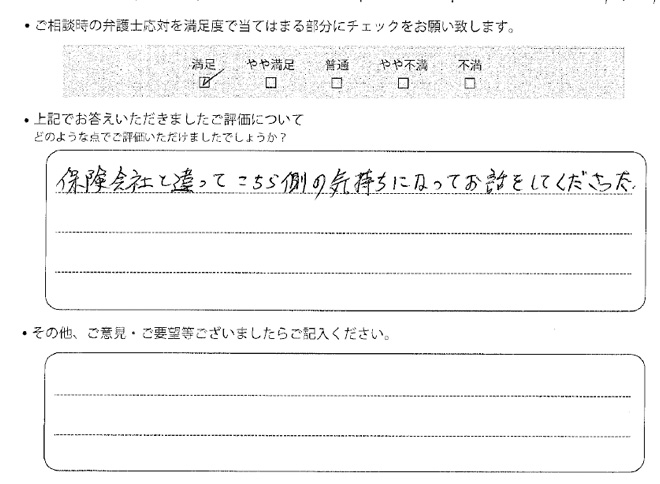 ・ご相談時の弁護士応対を満足度で当てはまる部分にチェックをお願い致します。
満足 やや満足 普通 やや不満 不満
☑ ☐ ☐ ☐ ☐
・上記でお答えいただきましたご評価について
どのような点でご評価いただけましたでしょうか?
保険会社と違ってこちら側の気持ちになってお話をしてくださった.
・その他、ご意見・ご要望等ございましたらご記入ください。